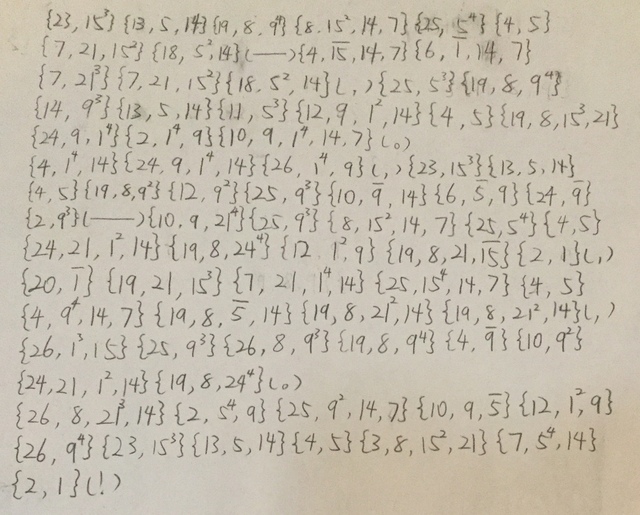 {23, 15³} {13, 5, 14} {19, 8, 9⁴} {8, 15², 14, 7} {25, 5⁴} {4, 5}
{7, 21, 15²} {18, 5², 14} (——) {4, 1̅5̅, 14, 7} {6, 1̅, 14, 7}
{7, 21³} {7, 21, 15²} {18, 5², 14} (,) {25, 5³} {19, 8, 9⁴}
{14, 9³} {13, 5, 14} {11, 5³} {12, 9, 1², 14} {4, 5} {19, 8, 15³, 21}
{24, 9, 1⁴} {2, 1⁴, 9} {10, 9, 1⁴, 14, 7} (。)
{4, 1⁴, 14} {24, 9, 1⁴, 14} {26, 1⁴, 9} (,) {23, 15³} {13, 5, 14}
{4, 5} {19, 8, 9²} {12, 9²} {25, 9³} {10, 9̅, 14} {6, 5̅, 9} {24, 9̅}
{2, 9³} (——) {10, 9, 21⁴} {25, 9³} {8, 15², 14, 7} {25, 5⁴} {4, 5}
{24, 21, 1², 14} {19, 8, 24⁴} {12 1², 9} {19, 8, 21, 1̅5̅} {2, 1} (,)
{20, 1̅} {19, 21, 15³} {7, 21, 1⁴, 14} {25, 15⁴, 14, 7} {4, 5}
{4, 9⁴, 14, 7} {19, 8, 5̅, 14} {19, 8, 21², 14} {19, 8, 21², 14} (,)
{26, 1³, 15} {25, 9³} {26, 8, 9³} {19, 8, 9⁴} {4, 9̅} {10, 9²}
{24, 21, 1², 14} {19, 8, 24⁴} (。)
{26, 8, 21³, 14} {2, 5⁴, 9} {25, 9², 14, 7} {10, 9, 5̅} {12, 1², 9}
{26, 9⁴} {23, 15³} {13, 5, 14} {4, 5} {3, 8, 15², 21} {7, 5⁴, 14}
{2, 1} (!)